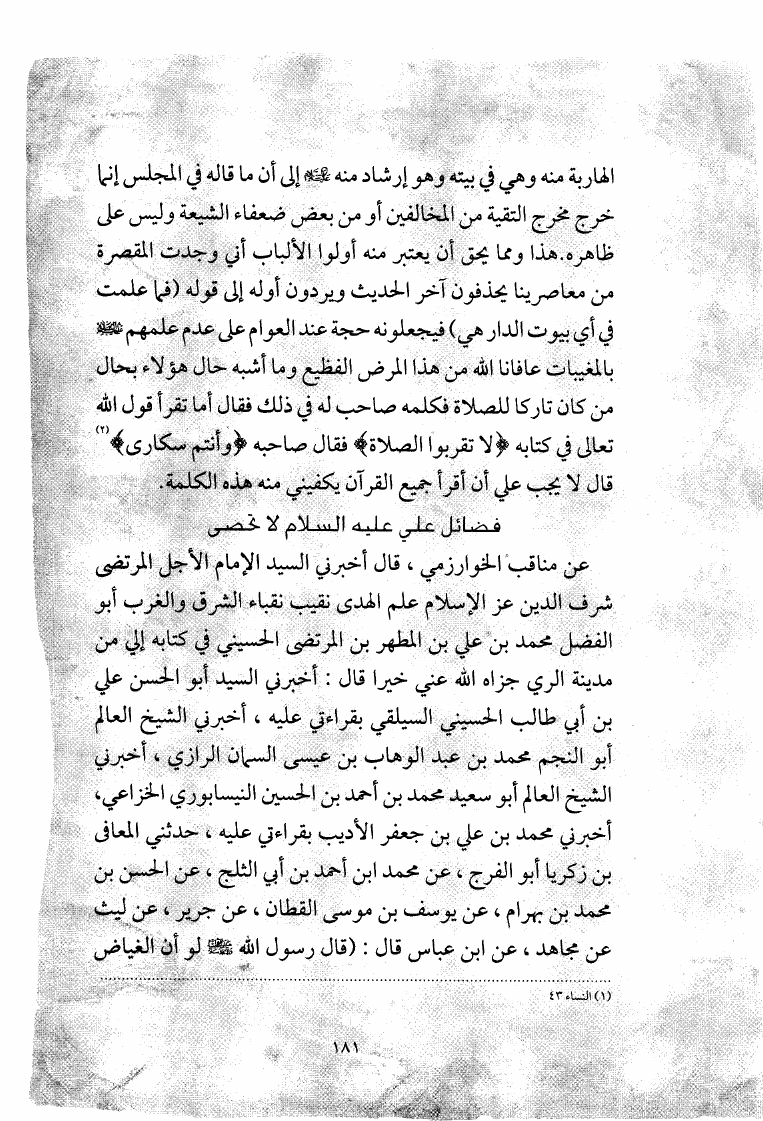 الهاربة منه وهي في بيته وهو إرشاد منه ﷺ إلى أن ما قاله في المجلس إنما
خرج مخرج التقية من المخالفين أو من بعض ضعفاء الشيعة وليس على
ظاهره.هذا ومما يحق أن يعتبر منه أولوا الألباب أني وجدت المقصرة
من معاصرينا يحذفون آخر الحديث ويردون أوله إلى قوله (فما علمت
في أي بيوت الدار هي) فيجعلونه حجة عند العوام على عدم علمهم
بالمغيبات عافانا الله من هذا المرض الفظيع وما أشبه حال هؤلاء بحال
من كان تاركا للصلاة فكلمه صاحب له في ذلك فقال أما تقرأ قول الله
تعالى في كتابه ﴿لا تقربوا الصلاة﴾ فقال صاحبه ﴿وأنتم سكارى﴾(٢)
قال لا يجب علي أن أقرأ جميع القرآن يكفيني منه هذه الكلمة.
فضائل علي عليه السلام لا تحصى
عن مناقب الخوارزمي ، قال أخبرني السيد الإمام الأجل المرتضى
شرف الدين عز الإسلام علم الهدى نقيب نقباء الشرق والغرب أبو
الفضل محمد بن علي بن المطهر بن المرتضى الحسيني في كتابه إلي من
مدينة الري جزاه الله عني خيرا قال : أخبرني السيد أبو الحسن علي
بن أبي طالب الحسيني السيلقي بقراءتي عليه ، أخبرني الشيخ العالم
أبو النجم محمد بن عبد الوهاب بن عيسى السمان الرازي ، أخبرني
الشيخ العالم أبو سعيد محمد بن أحمد بن الحسين النيسابوري الخزاعي،
أخبرني محمد بن علي بن جعفر الأديب بقراءتي عليه ، حدثني المعافى
بن زكريا أبو الفرج ، عن محمد ابن أحمد بن أبي الثلج ، عن الحسن بن
محمد بن بهرام ، عن يوسف بن موسى القطان ، عن جرير ، عن ليث
عن مجاهد ، عن ابن عباس قال : (قال رسول الله ﷺ لو أن الغياض
(١) النساء ٤٣
١٨١